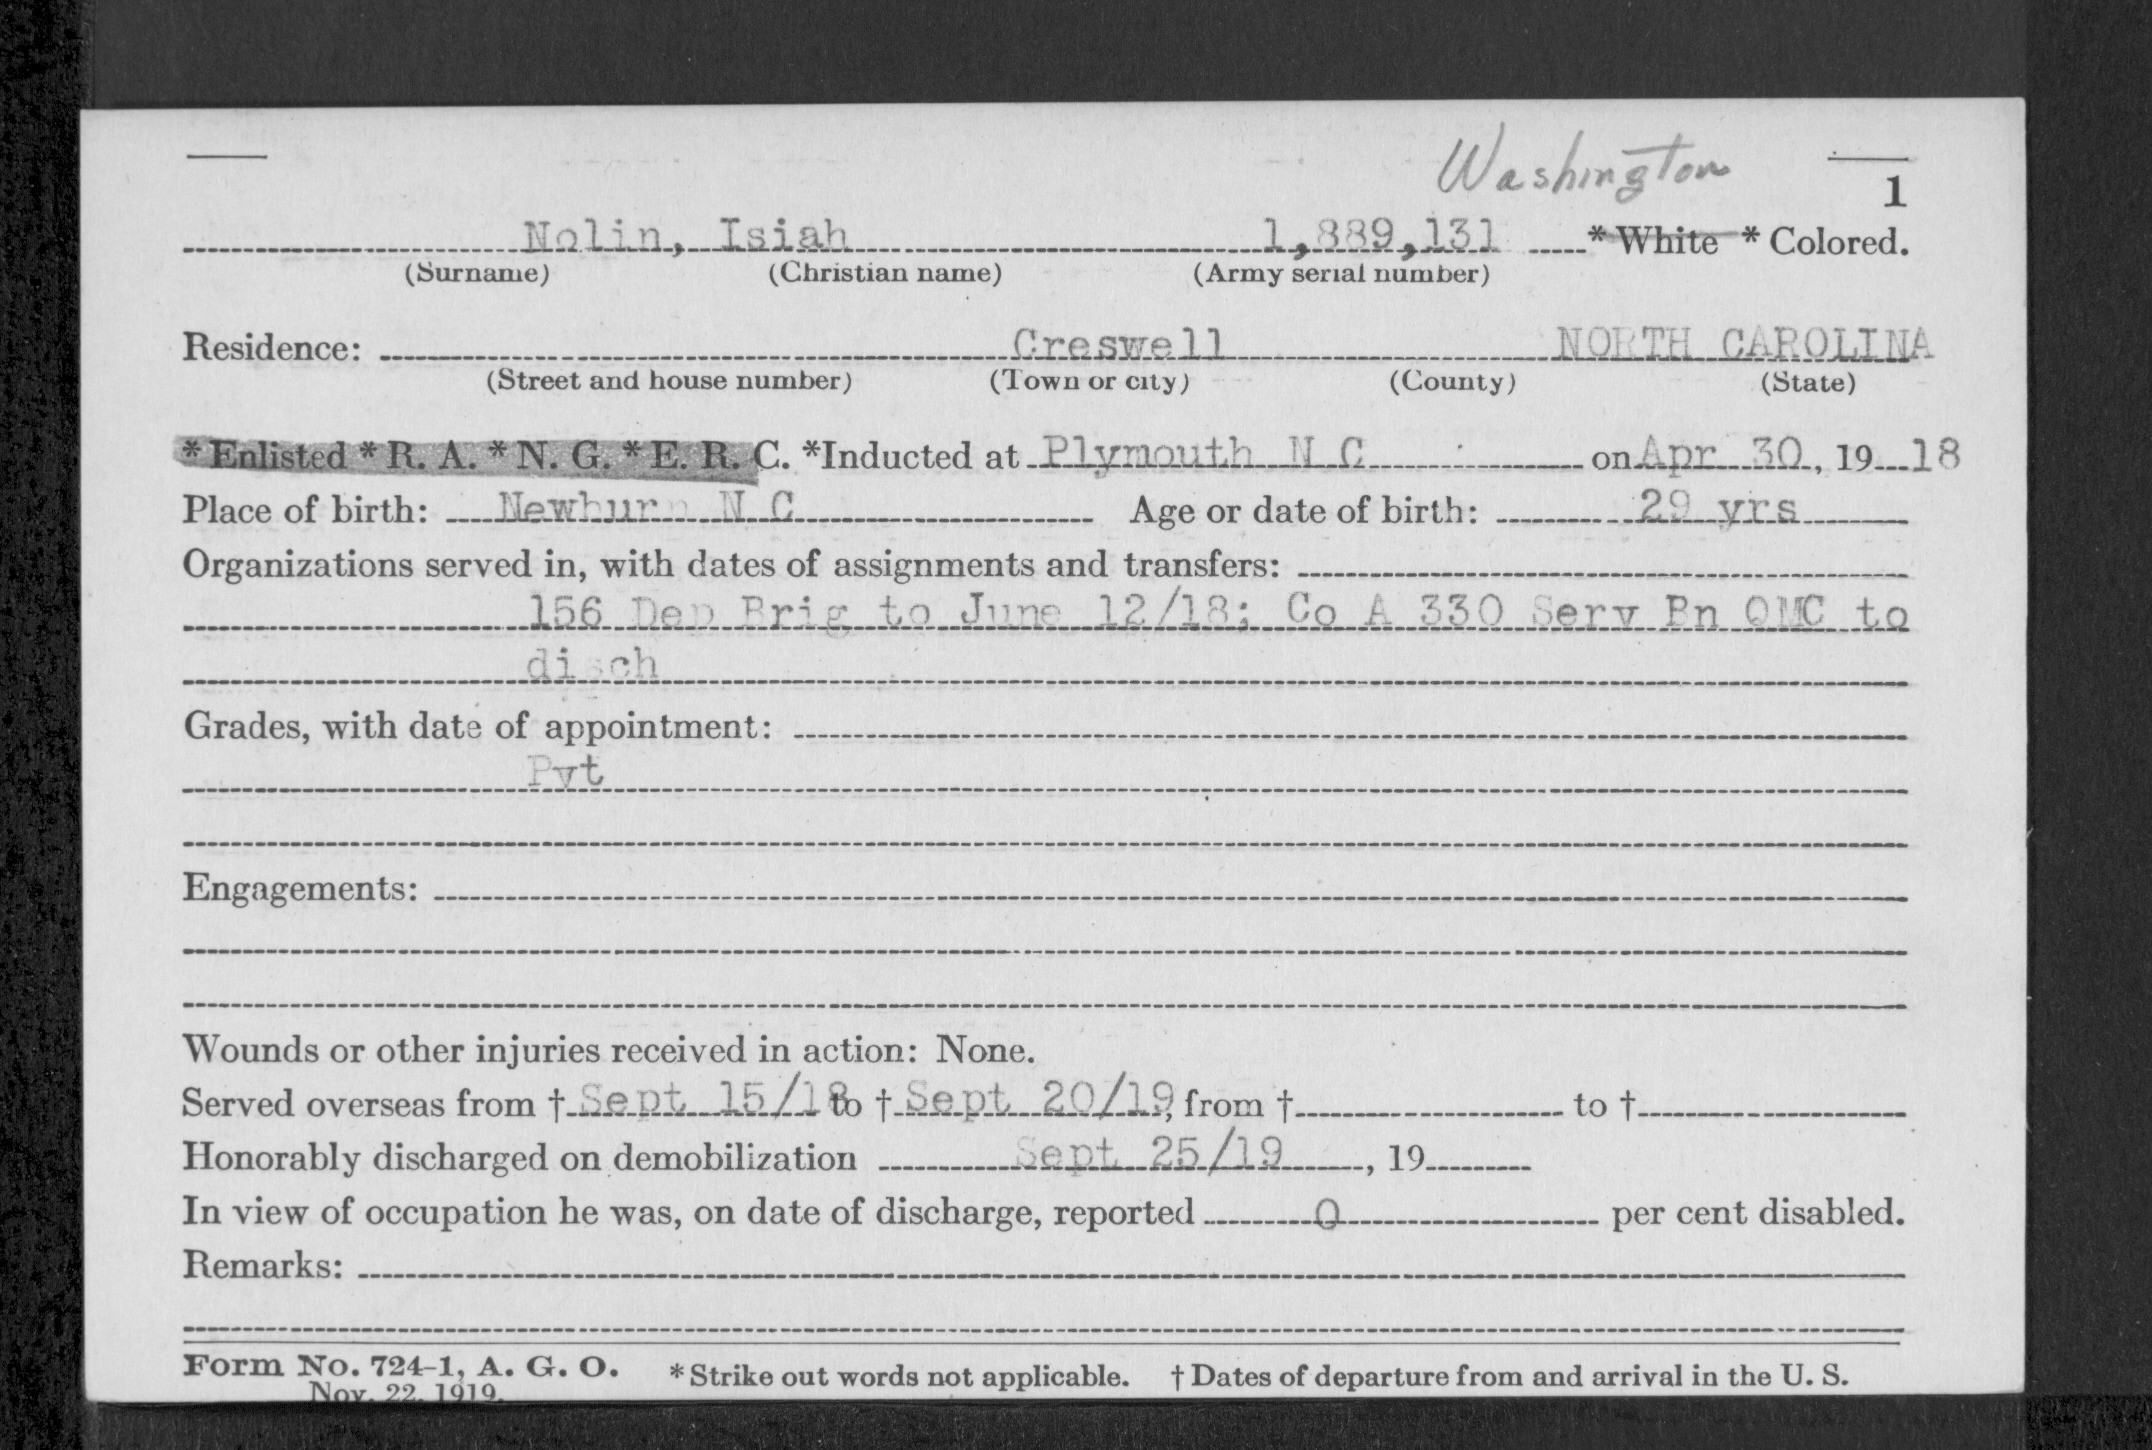 Washington
1
Nolin, Isiah 1,889,131 * White * Colored.
(Surname) (Christian name) (Army serial number)
Residence: Creswell NORTH CAROLINA
(Street and house number) (Town or city) (County) (State)
* Enlisted * R. A. * N. G. * E. R. C. *Inducted at Plymouth N C on Apr 30, 19 18
Place of birth: Newburn N C Age or date of birth: 29 yrs
Organizations served in, with dates of assignments and transfers:
156 Dep Brig to June 12/18; Co A 330 Serv Bn QMC to
disch
Grades, with date of appointment:
Pvt
Engagements:
Wounds or other injuries received in action: None.
Served overseas from † Sept 15/18 to † Sept 20/19, from † to †
Honorably discharged on demobilization Sept 25/19, 19
In view of occupation he was, on date of discharge, reported 0 per cent disabled.
Remarks:
Form No. 724-1, A. G. O. * Strike out words not applicable. † Dates of departure from and arrival in the U. S.
Nov. 22, 1919.